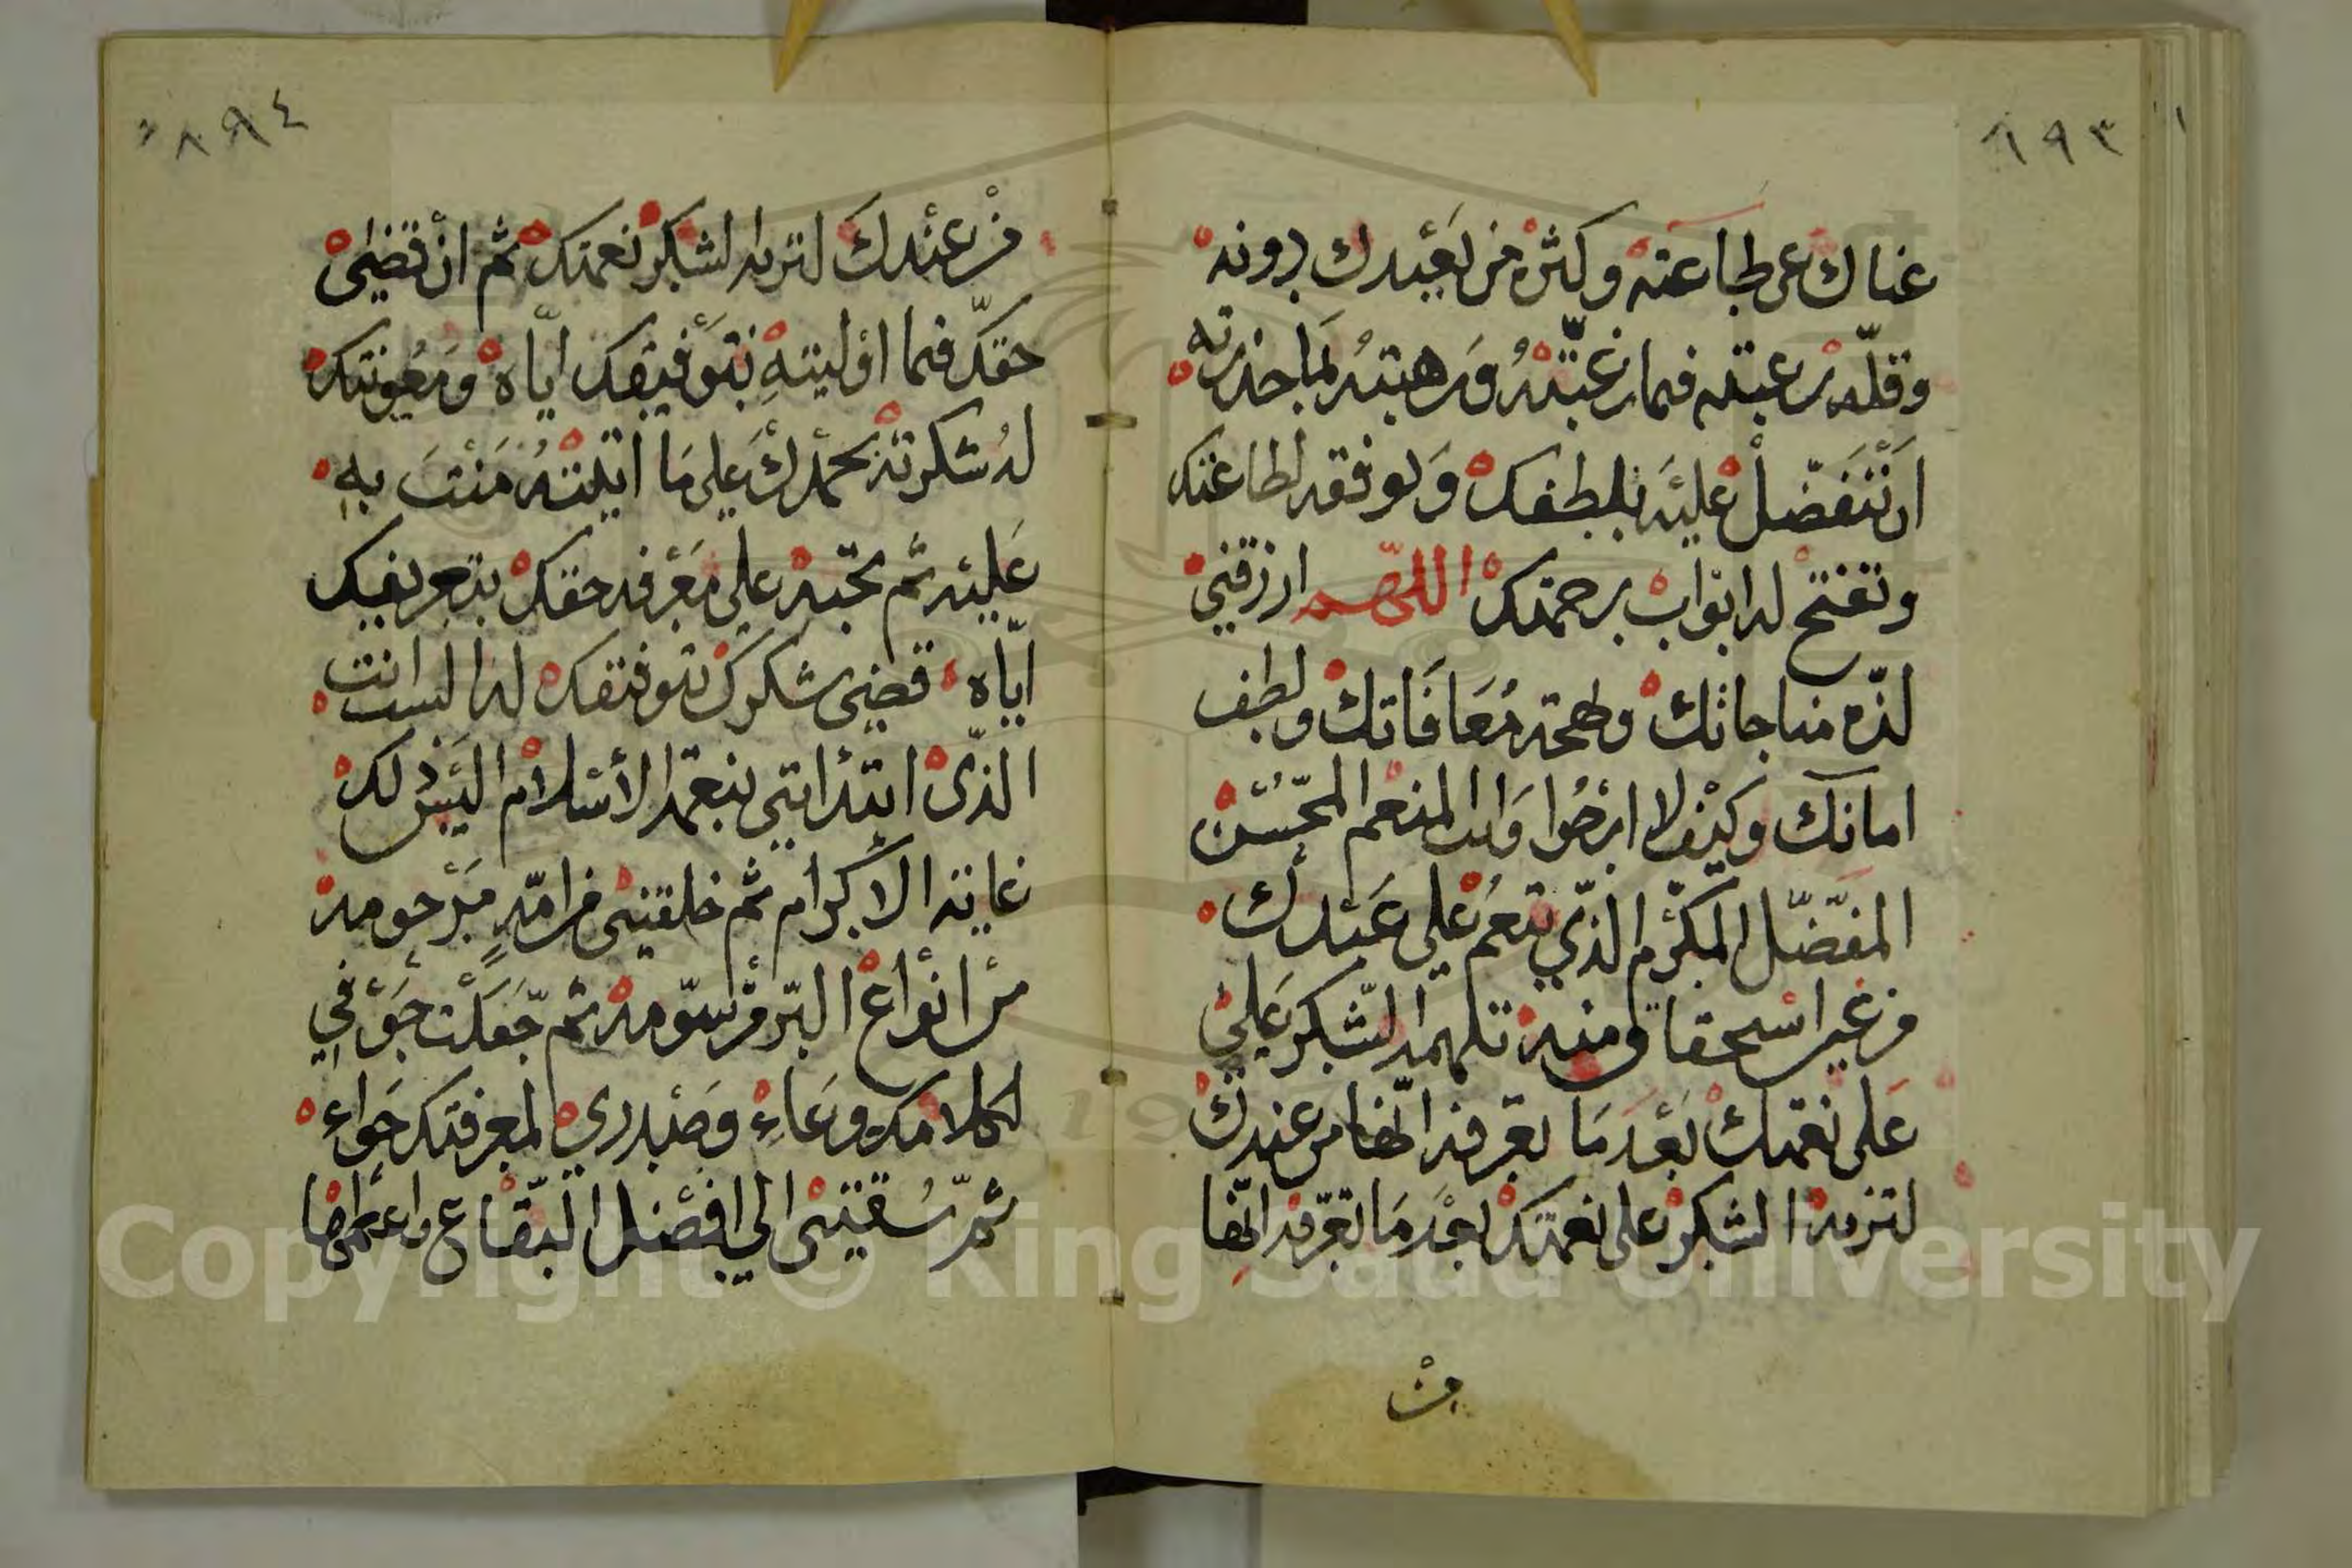 ٦٩٣
غناك عن طاعته وكثرة من يعبدك دونه
وقلة رغبته فيما رغبته ورهبته لما حذرته
ان تتفضل عليه بلطفك وتوفقه لطاعتك
وتفتح له ابواب رحمتك اللهم ارزقني
لذة مناجاتك وطمحة معافاتك ولطف
امانك وكيف لا ارجوا وانت المنعم المحسن
المفضل المكرم الذي تنعم على عبدك
من غير استحقاق منه تلهمه الشكر على
على نعمتك بعد ما تعرفه انها من عندك
لتزيده الشكر على نعمتك بعد ما تعرفه انها
من
٨٩٤
من عندك لتزيده الشكر نعمتك ثم ان قضى
حقك فيما اوليته بتوفيقك اياه ومعونتك
له شكرته بحمدك على ما ابليته مننت به
عليه ثم تحبه على معرفة حقك بتعريفك
اياه قضى شكرك بتوفيقك له الست انت
الذي ابتدأتني بنعمة الاسلام اليس ذلك
غاية الاكرام ثم خلقتني من امة مرحومة
من انواع البر مرسومة ثم جعلت جوفي
لكلامك وعاء وصدري لمعرفتك حواء
ثم سقتني الى افضل البقاع واعظمها
Copyright © King Saud University